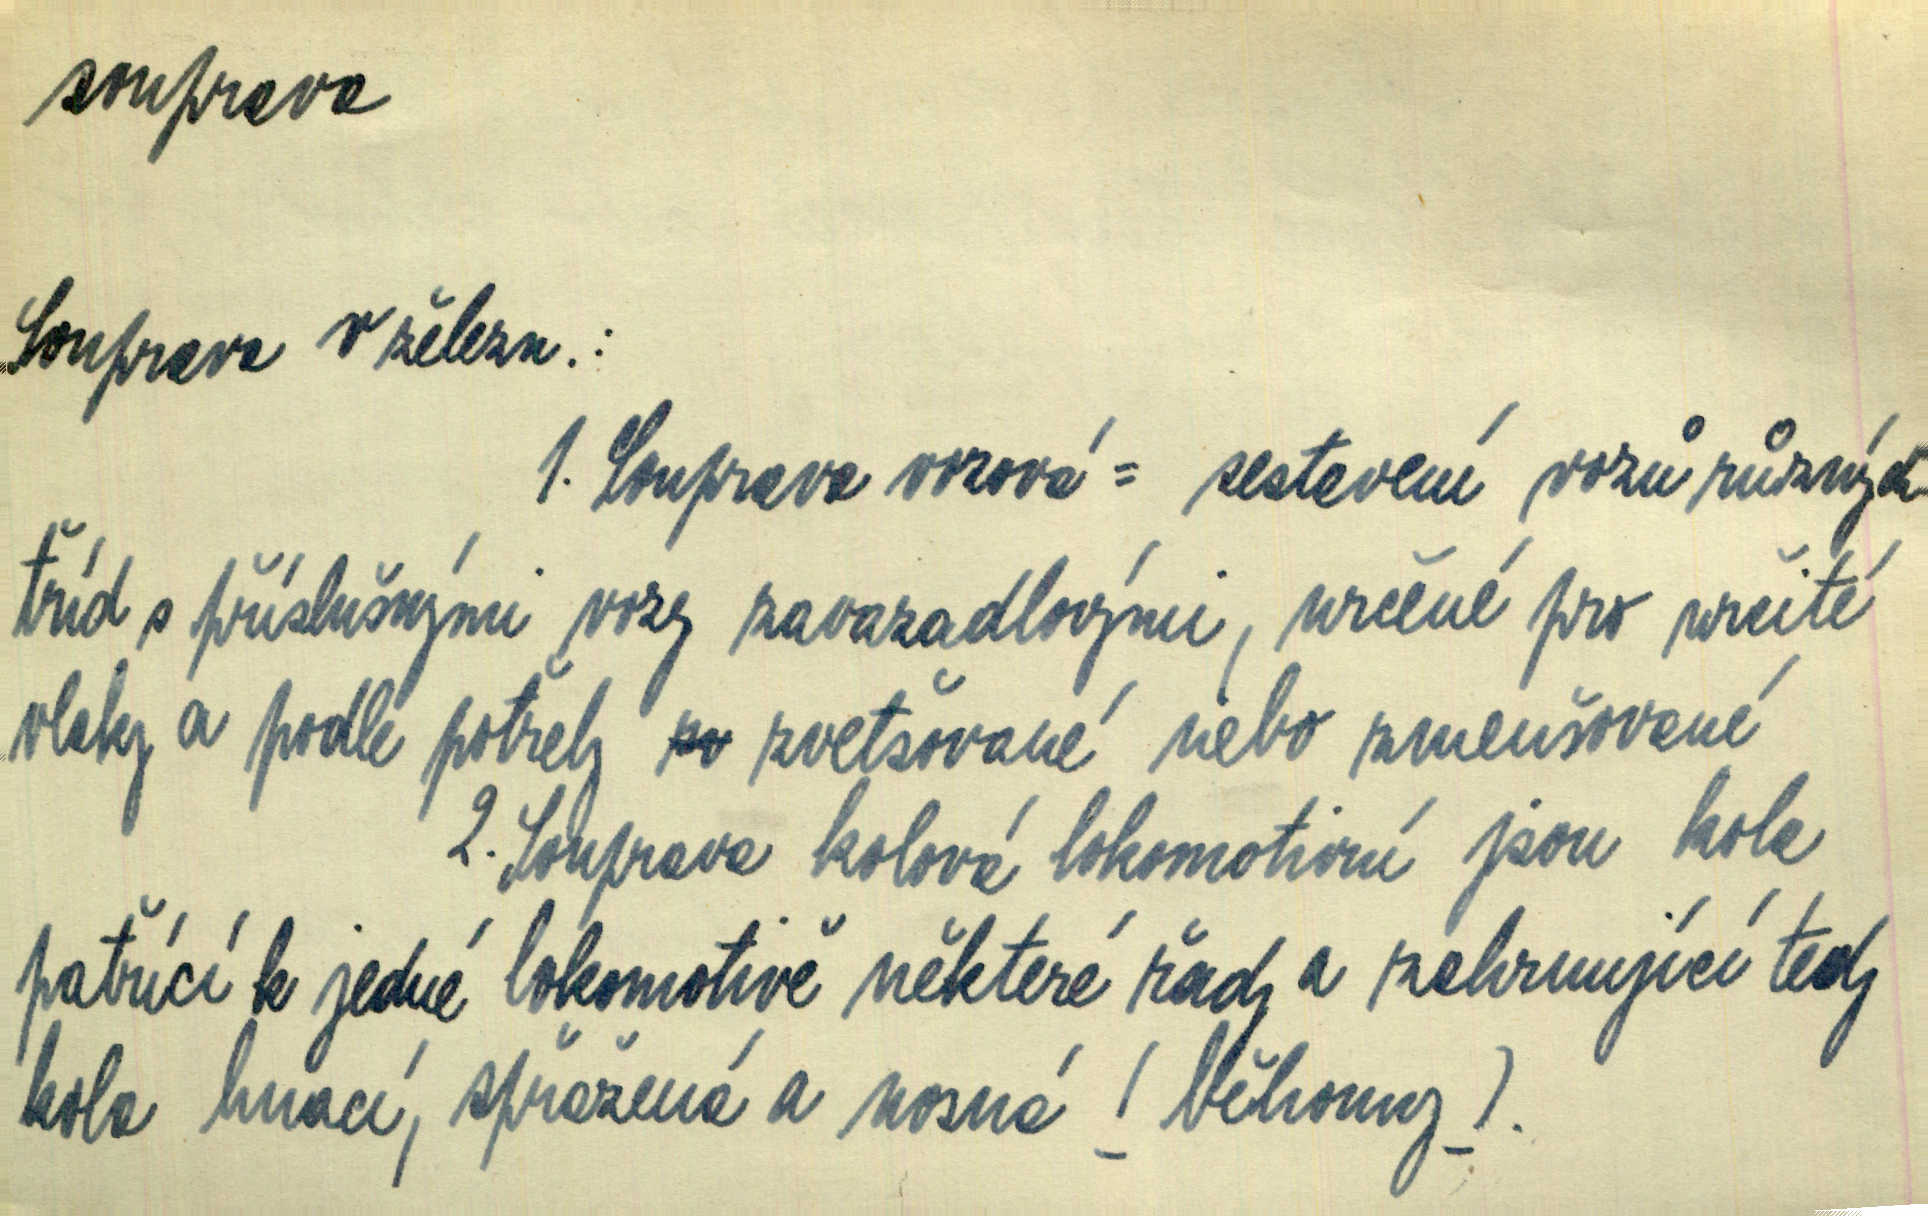 souprava
Souprava v železn.:
1. Souprava vozová = sestavení vozů různých
tříd s příslušnými vozy zavazadlovými, určené pro určité
vlaky a podle potřeby zvetšované nebo zmenšované
2. Souprava kolová lokomotivní jsou kola
patřící k jedné lokomotivě některé řady a zahrnující tedy
kola hnací, spřažená a nosná (běhouny).